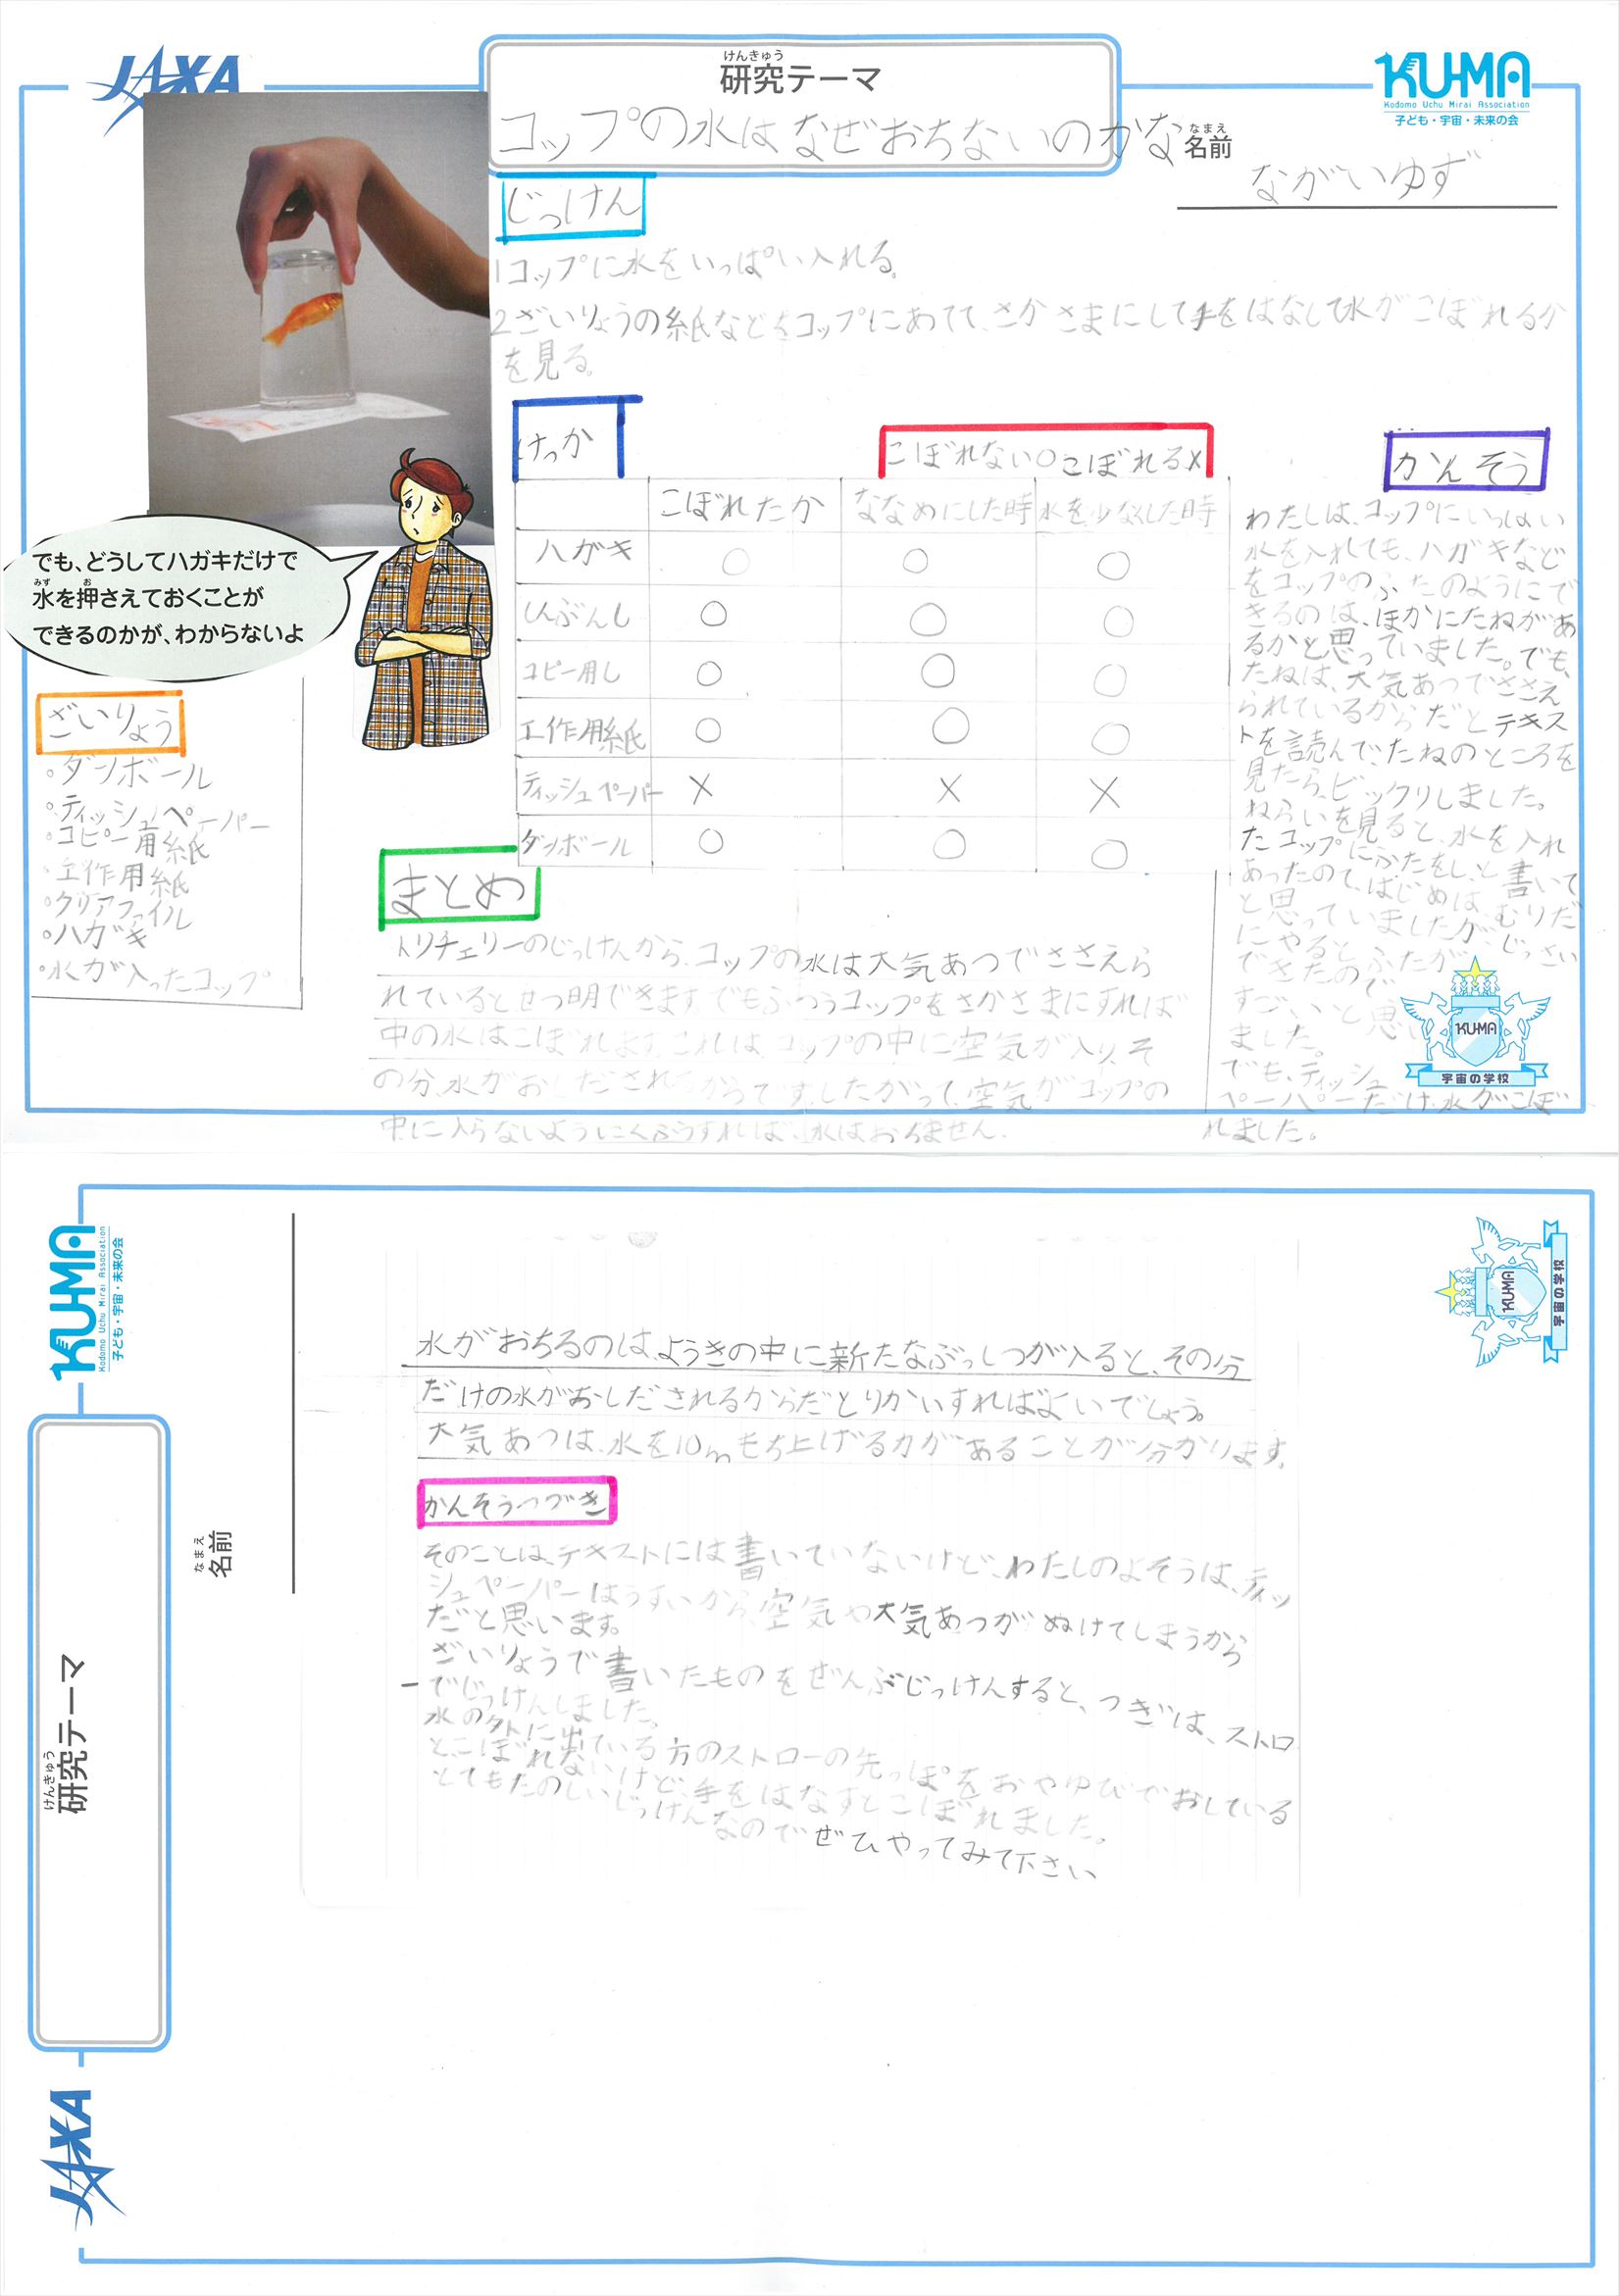 JAXA
けんきゅう
研究テーマ
コップの水はなぜおちないのかな
KUMA
Kodomo Uchu Mirai Association
子ども・宇宙・未来の会
なまえ
名前
ながいゆず
じっけん
1コップに水をいっぱい入れる。
2ざいりょうの紙などをコップにあてて、さかさまにして手をはなして水がこぼれるか
を見る。
でも、どうしてハガキだけで
みず お
水を押さえておくことが
できるのかが、わからないよ
ざいりょう
・ダンボール
・ティッシュペーパー
・コピー用紙
・工作用紙
・クリアファイル
・ハガキ
・水が入ったコップ
けっか
こぼれない○こぼれる×
こぼれたか ななめにした時 水を少なくした時
ハガキ ○ ○ ○
しんぶんし ○ ○ ○
コピー用し ○ ○ ○
工作用紙 ○ ○ ○
ティッシュペーパー × × ×
ダンボール ○ ○ ○
まとめ
トリチェリーのじっけんから、コップの水は大気あつでささえら
れているとせつ明できます。でもふつうコップをさかさまにすれば
中の水はこぼれます。これは、コップの中に空気が入り、そ
の分、水がおしだされるからです。したがって、空気がコップの
中に入らないようにくふうすれば、水はおちません。
かんそう
わたしは、コップにいっぱい
水を入れても、ハガキなど
をコップのふたのようにで
きるのは、ほかにたねがあ
るかと思っていました。でも、
たねは、大気あつでささえ
られているからだとテキス
トを読んで、たねのところを
見たら、ビックリしました。
ねらいを見ると、水を入れ
たコップにふたをし、と書いて
あったので、はじめは、むりだ
と思っていましたが、じっさい
にやると、ふたが
できたので
すごいと思い
ました。
でも、ティッシュ
ペーパーだけ、水がこぼ
れました。
KUMA
宇宙の学校
KUMA
Kodomo Uchu Mirai Association
子ども・宇宙・未来の会
KUMA
宇宙の学校
なまえ
名前
けんきゅう
研究テーマ
JAXA
水がおちるのは、ようきの中に新たなぶっしつが入ると、その分
だけの水がおしだされるからだとりかいすればよいでしょう。
大気あつは、水を10mもち上げる力があることが分かります。
かんそうつづき
そのことは、テキストには書いていないけど、わたしのよそうは、ティッ
シュペーパーはうすいから、空気や大気あつがぬけてしまうから
だと思います。
ざいりょうで書いたものをぜんぶじっけんすると、つぎは、ストロ
ーでじっけんしました。
水の外に出ている方のストローの先っぽをおやゆびでおしている
とこぼれないけど、手をはなすとこぼれました。
とてもたのしいじっけんなのでぜひやってみて下さい